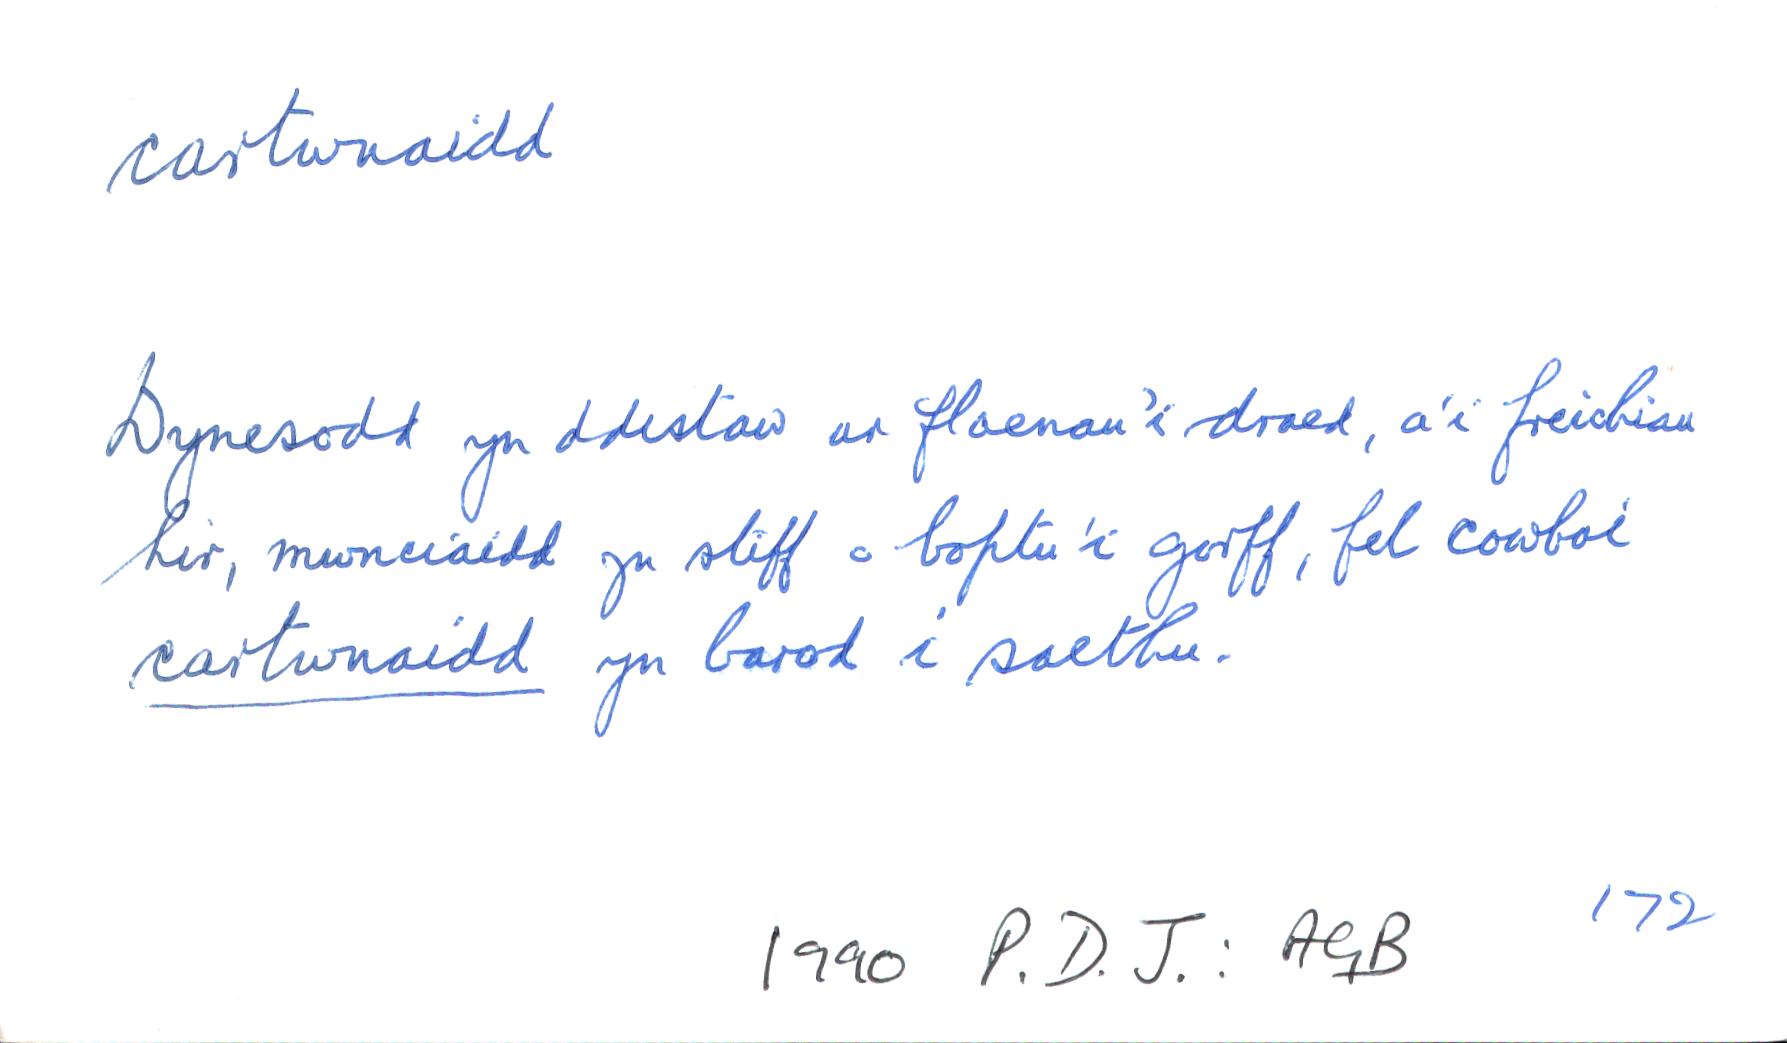 cartwnaidd
Dynesodd yn ddistaw ar flaenau'i draed, a'i freichiau
hir, mwnciaidd yn stiff o boptu'i gorff, fel cowboi
cartwnaidd yn barod i saethu.
172
1990 P.D.J.: AGB